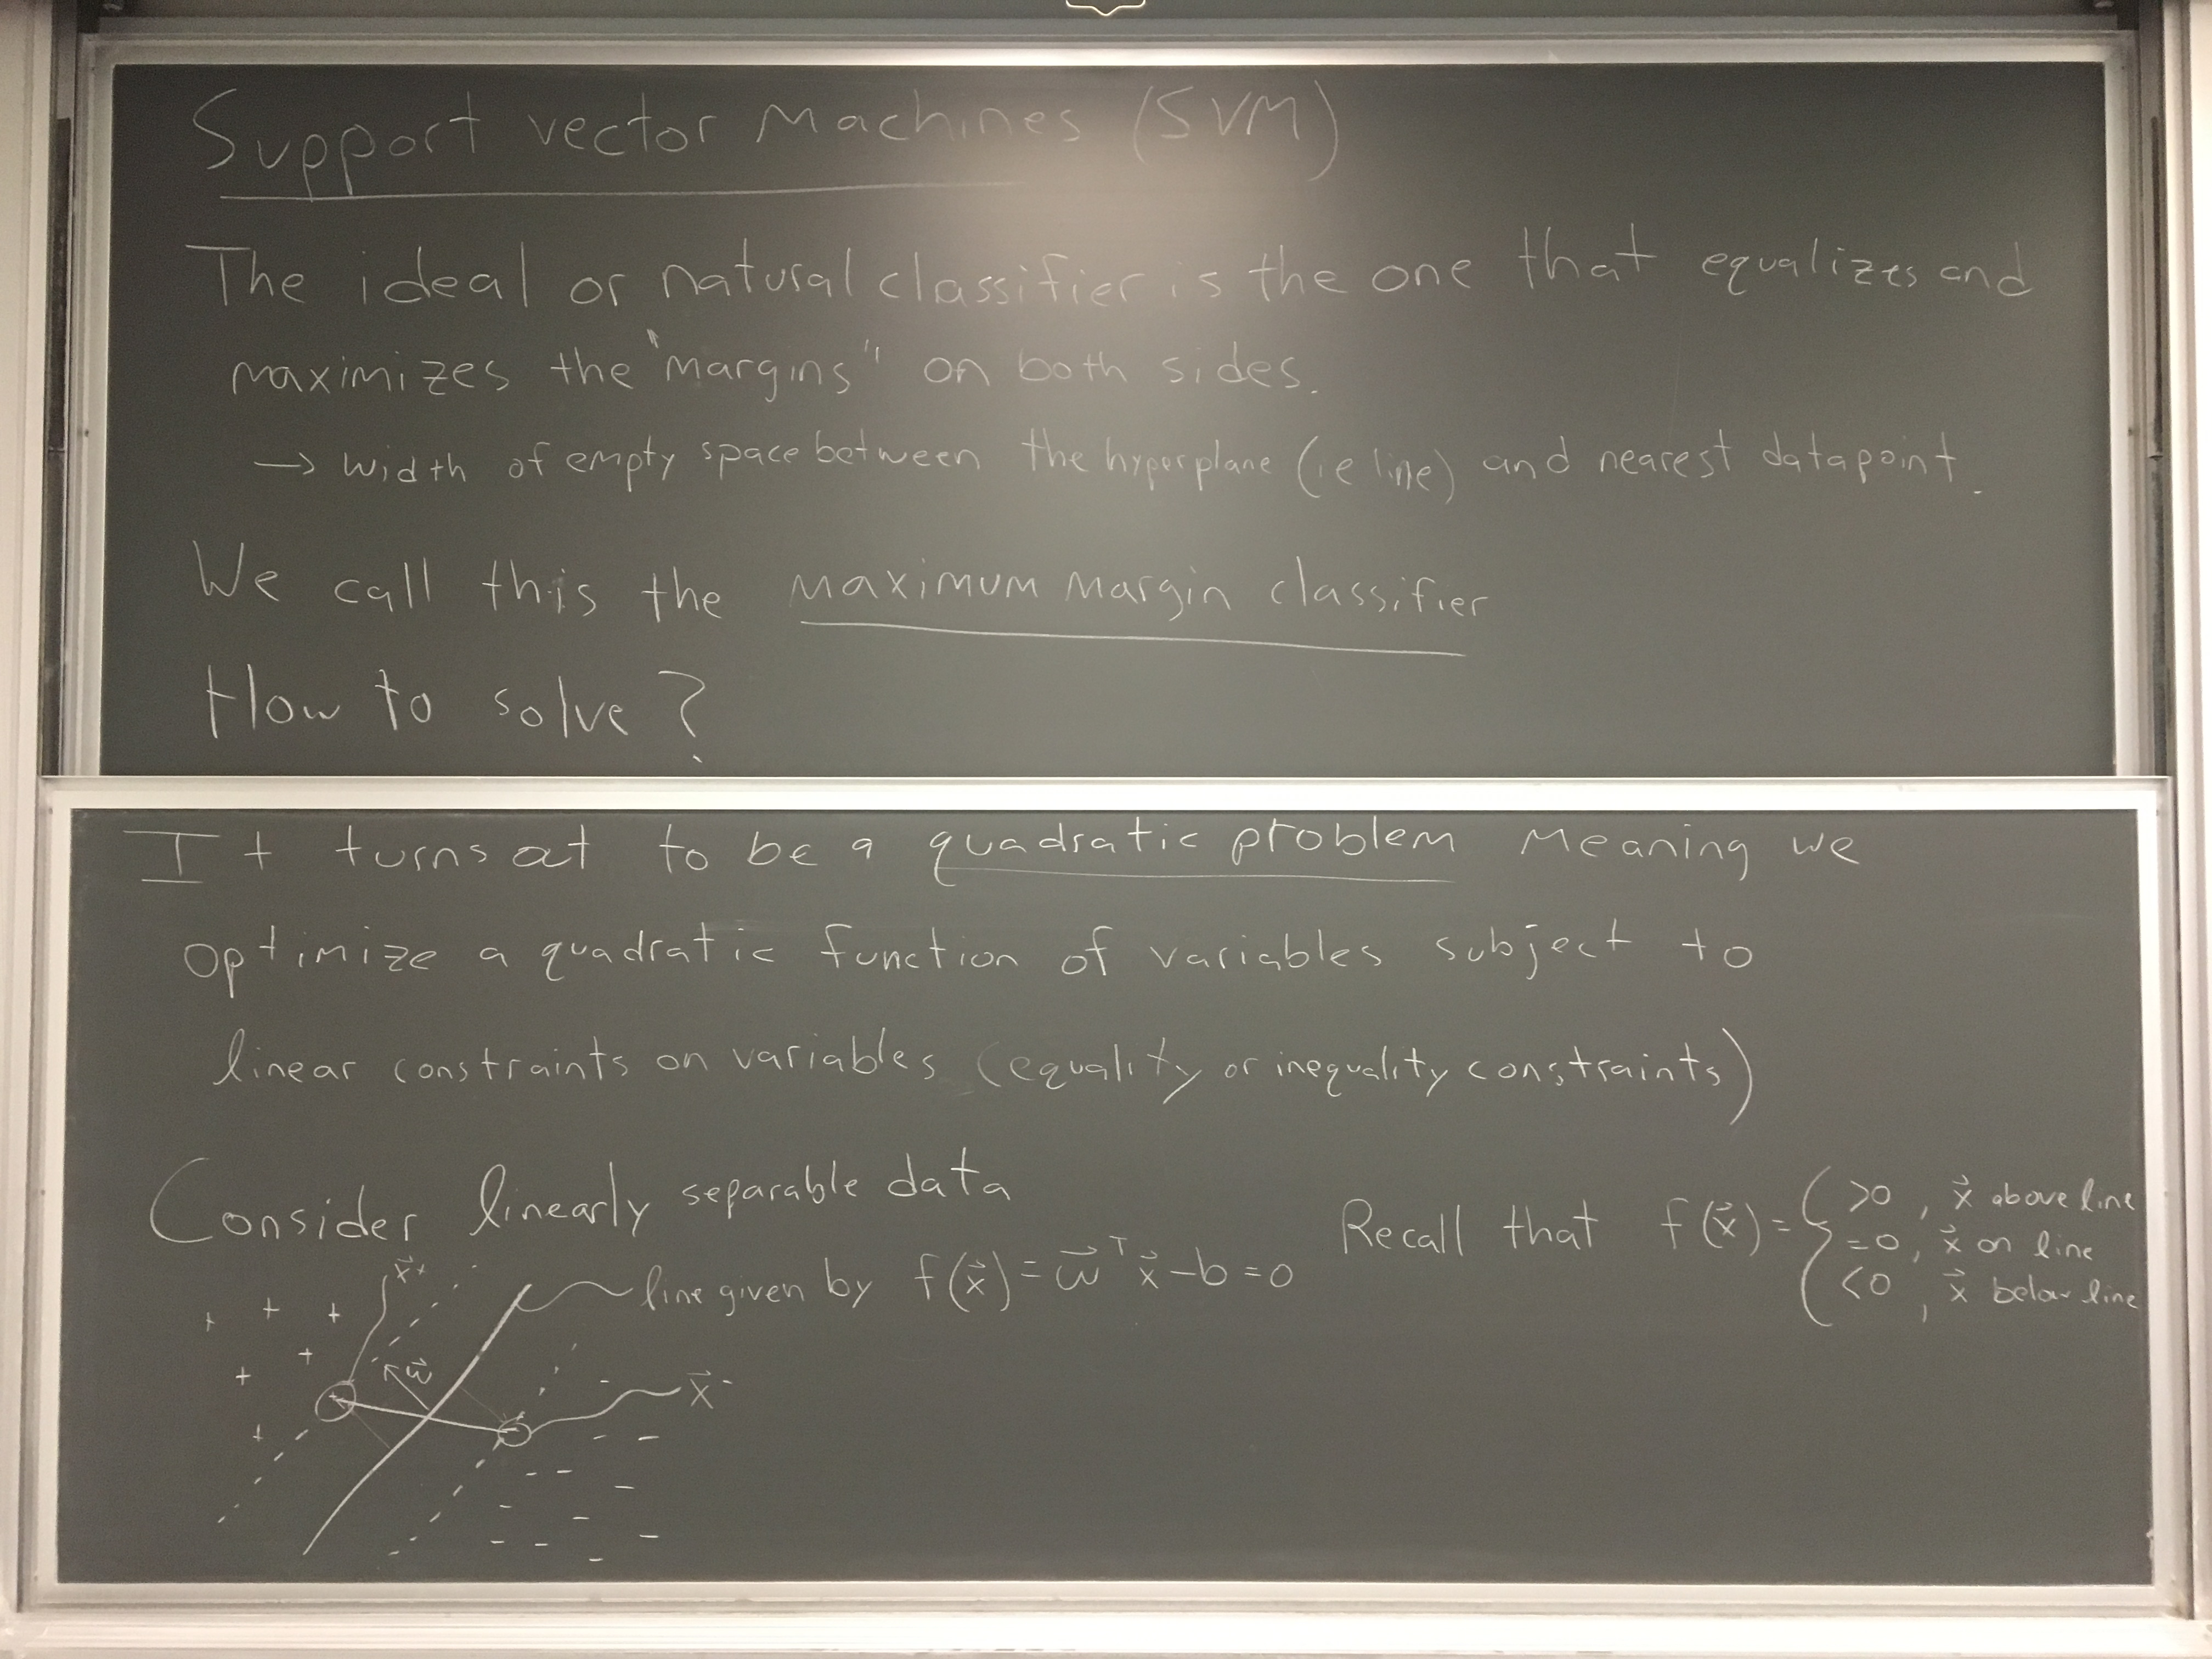 Support vector Machines (SVM)
The ideal or natural classifier is the one that equalizes and
maximizes the "margins" on both sides.
→ width of empty space between the hyperplane (ie line) and nearest datapoint.
We call this the maximum margin classifier
How to solve?
It turns out to be a quadratic problem meaning we
optimize a quadratic function of variables subject to
linear constraints on variables (equality or inequality constraints)
Consider linearly separable data
line given by f(x⃗) = w⃗ᵀx⃗ - b = 0
x⃗⁺
w⃗
x⃗⁻
Recall that f(x⃗) = { >0, x⃗ above line
=0, x⃗ on line
<0, x⃗ below line